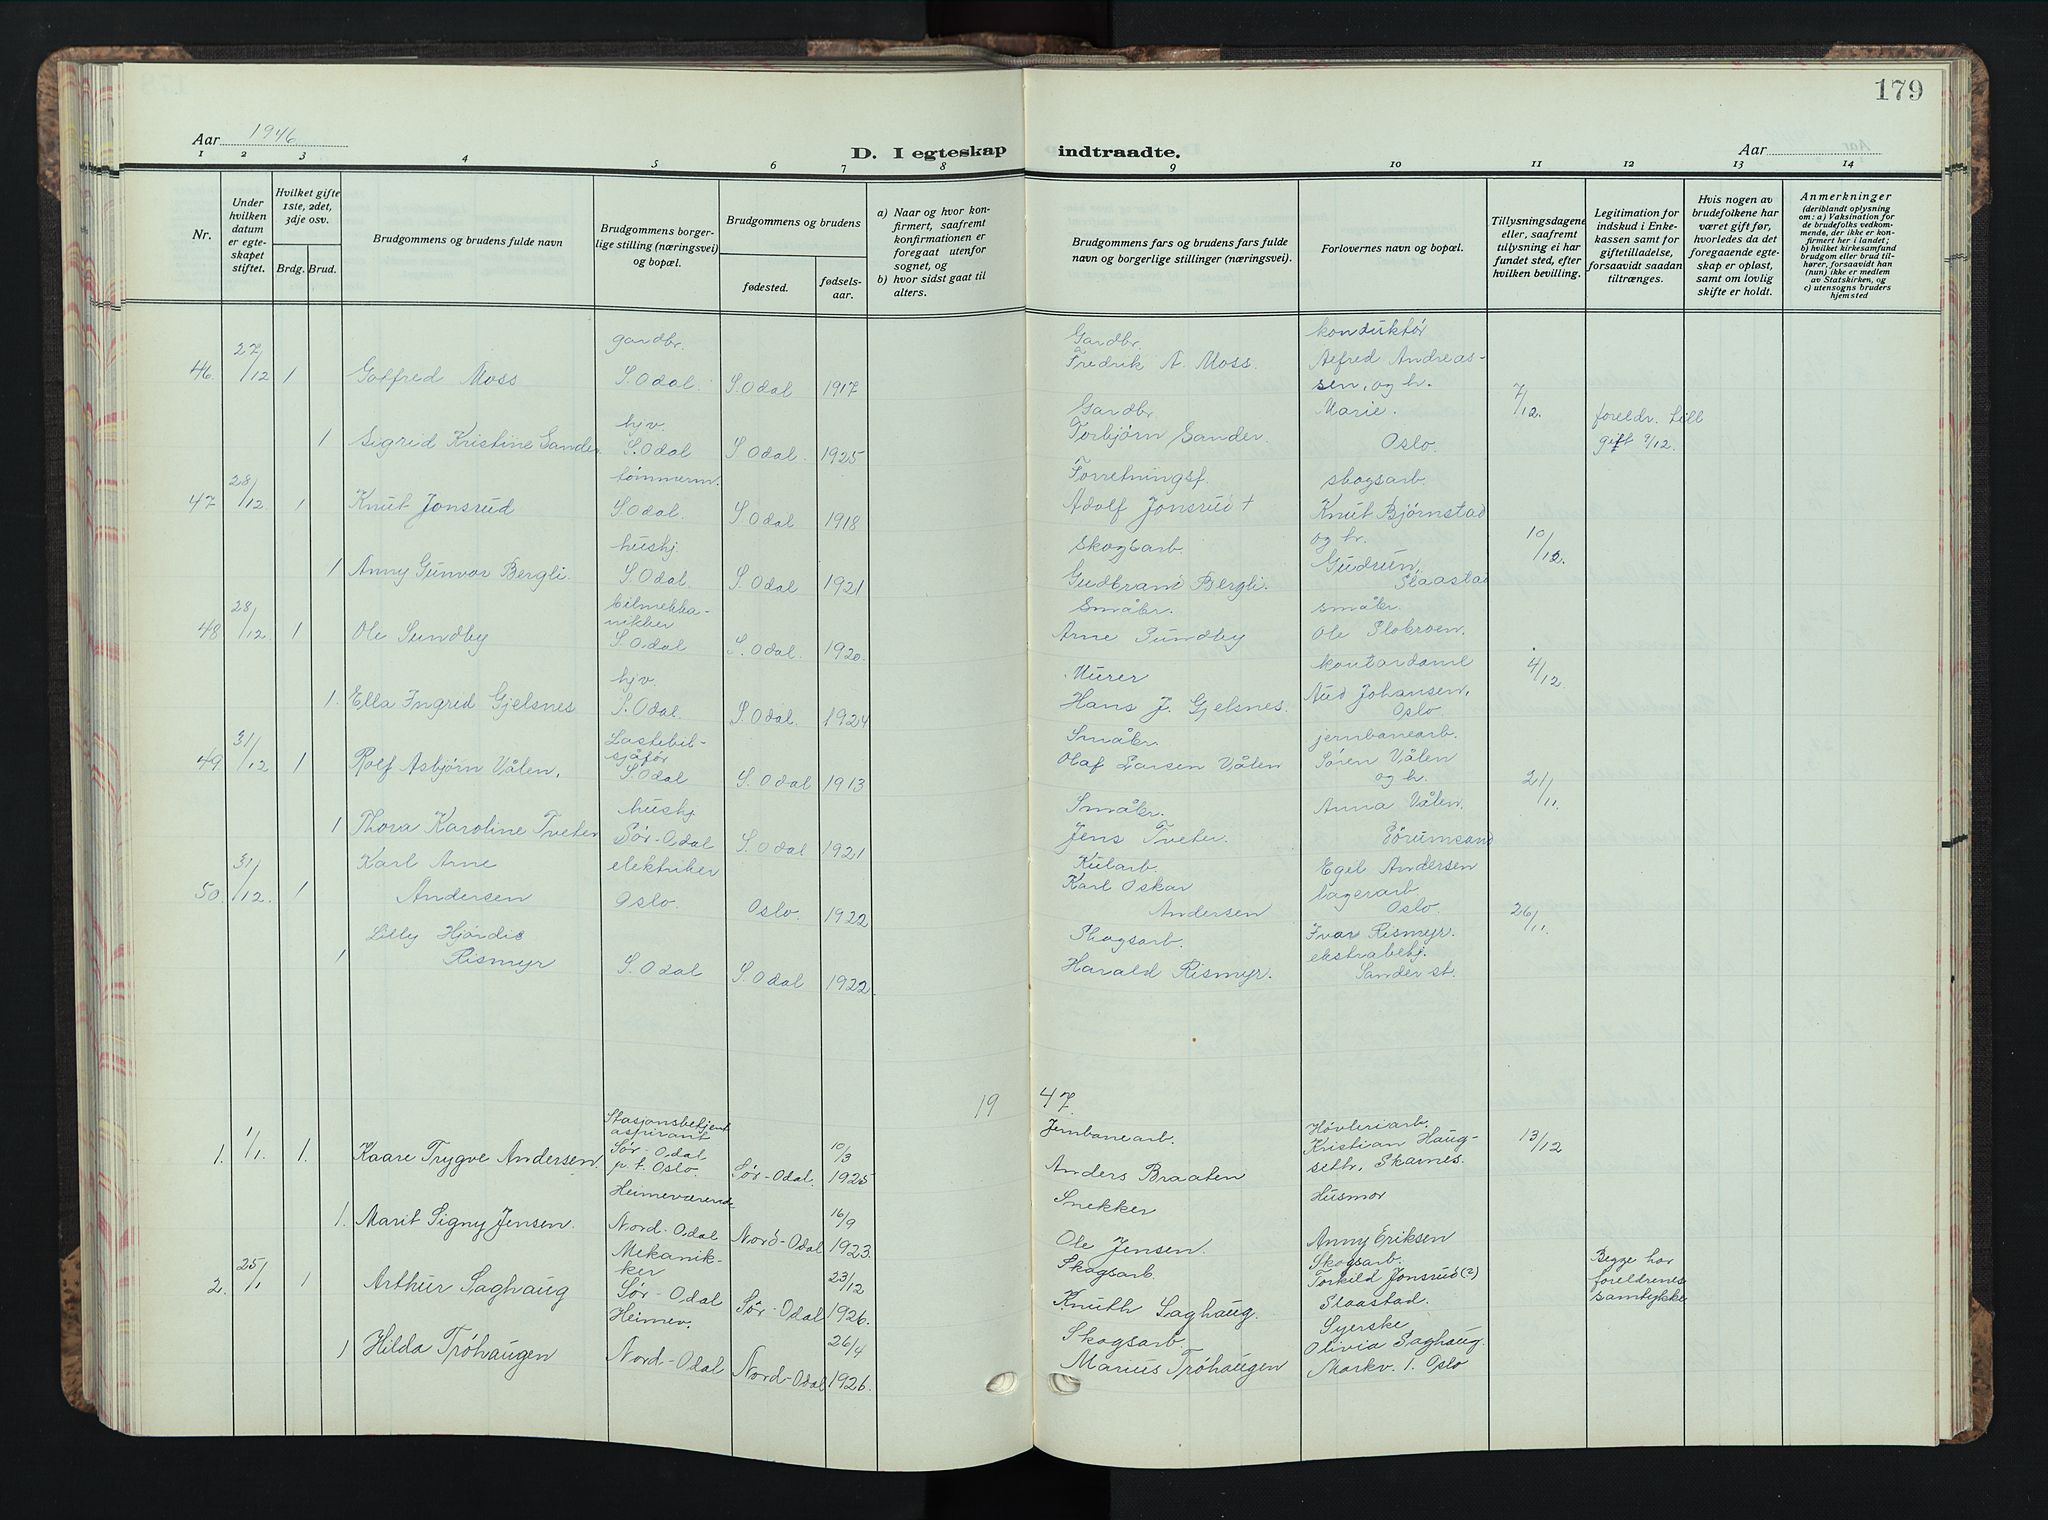 179
Aar 1946
D. I egteskap indtraadte.
Aar
1 2 3 4 5 6 7 8 9 10 11 12 13 14
Nr.
Under hvilken datum er egteskapet stiftet.
Hvilket gifte 1ste, 2det, 3dje osv.
Brdg. Brud.
Brudgommens og brudens fulde navn
Brudgommens borgerlige stilling (næringsvei) og bopæl.
Brudgommens og brudens
fødested.
fødselsaar.
a) Naar og hvor konfirmert, saafremt konfirmationen er foregaat utenfor sognet, og
b) hvor sidst gaat til alters.
Brudgommens fars og brudens fars fulde navn og borgerlige stillinger (næringsvei).
Forlovernes navn og bopæl.
Tillysningsdagene eller, saafremt tillysning ei har fundet sted, efter hvilken bevilling.
Legitimation for indskud i Enkekassen samt for giftetilladelse, forsaavidt saadan tiltrænges.
Hvis nogen av brudefolkene har været gift før, hvorledes da det foregaaende egteskap er opløst, samt om lovlig skifte er holdt.
Anmerkninger
(deriblandt oplysning om: a) Vaksination for de brudefolks vedkommende, der ikke er konfirmert her i landet; b) hvilket kirkesamfund brudgom eller brud tilhører, forsaavidt han (hun) ikke er medlem av Statskirken, og c) utensogns bruders hjemsted
46. 27/12 1 Gotfred Moss gardbr. S. Odal S. Odal 1917 Gardbr. Fredrik A. Moss. konduktør Alfred Andreassen, og hr. 7/12.
1 Sigrid Kristine Sander hjv. S. Odal S. Odal. 1925 Gardbr. Torbjørn Sander. Marie. Oslo. foreldr. till gift 7/12.
47 28/12. 1 Knut Jonsrud tømmerm. S. Odal. S. Odal 1918 Forretningsf. Adolf Jonsrud + skogsarb. Knut Bjørnstad og hr. 10/12.
1 Anny Gunvor Bergli. hushj. S. Odal. S. Odal. 1921 Skogsarb. Gudbrand Bergli. Gudrun, Slaastad
48 28/12. 1 Ole Sundby bilmekkanikker S. Odal S. Odal. 1920. Småbr. Arne Sundby småbr. Ole Slobroen.
1. Ella Ingrid Gjelsnes hjv. S. Odal. S. Odal. 1924 Murer Hans J. Gjelsnes. kontordame Aud Johansen, Oslo. 4/12.
49 31/12 1 Rolf Asbjørn Vålen. Lastebilsjåfør S. Odal S. Odal 1913 Småbr. Olaf Larsen Vålen jernbanearb. Søren Vålen og hr. 21/11.
1 Thora Karoline Tveter hushj Sør-Odal S. Odal 1921 Småbr. Jens Tveter. Anna Vålen. Sørumsand
50. 31/12. 1 Karl Arne Andersen elektriker Oslo. Oslo. 1922 Karl Oskar Andersen Egil Andersen lagerarb. Oslo. 26/11.
1 Lilly Hjørdis Rismyr S. Odal S. Odal 1922. Skogsarb. Harald Rismyr. Ivar Rismyr. ekstrabetj. Sander st.
19 47.
1. 1/1. 1. Kaare Trygve Andersen. Stasjonsbetjentaspirant Sør-Odal p.t. Oslo. Sør-Odal. 10/3 1925 Jernbanearb. Anders Braaten Høvleriarb. Kristian Haugseth, Skarnes. 13/12
1. Marit Signy Jensen. Heimeværende Nord-Odal Nord-Odal 16/9 1923. Snekker Ole Jensen. Husmor Anny Eriksen
2. 25/1 1 Arthur Saghaug Mekanikker Sør-Odal Sør-Odal 23/12 1926. Skogsarb. Knuth Saghaug. Skogsarb. Torkild Jonsrud (?) Slaastad. Begge har foreldrenes samtykke
1 Hilda Trøhaugen Heimev. Nord-Odal Nord-Odal 26/4 1926. Skogsarb. Marius Trøhaugen Syerske Olivia Saghaug. Markv. 1. Oslo